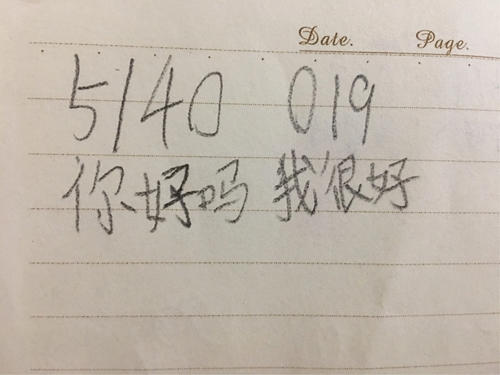 Date. Page.
5140 019
你好吗 我很好